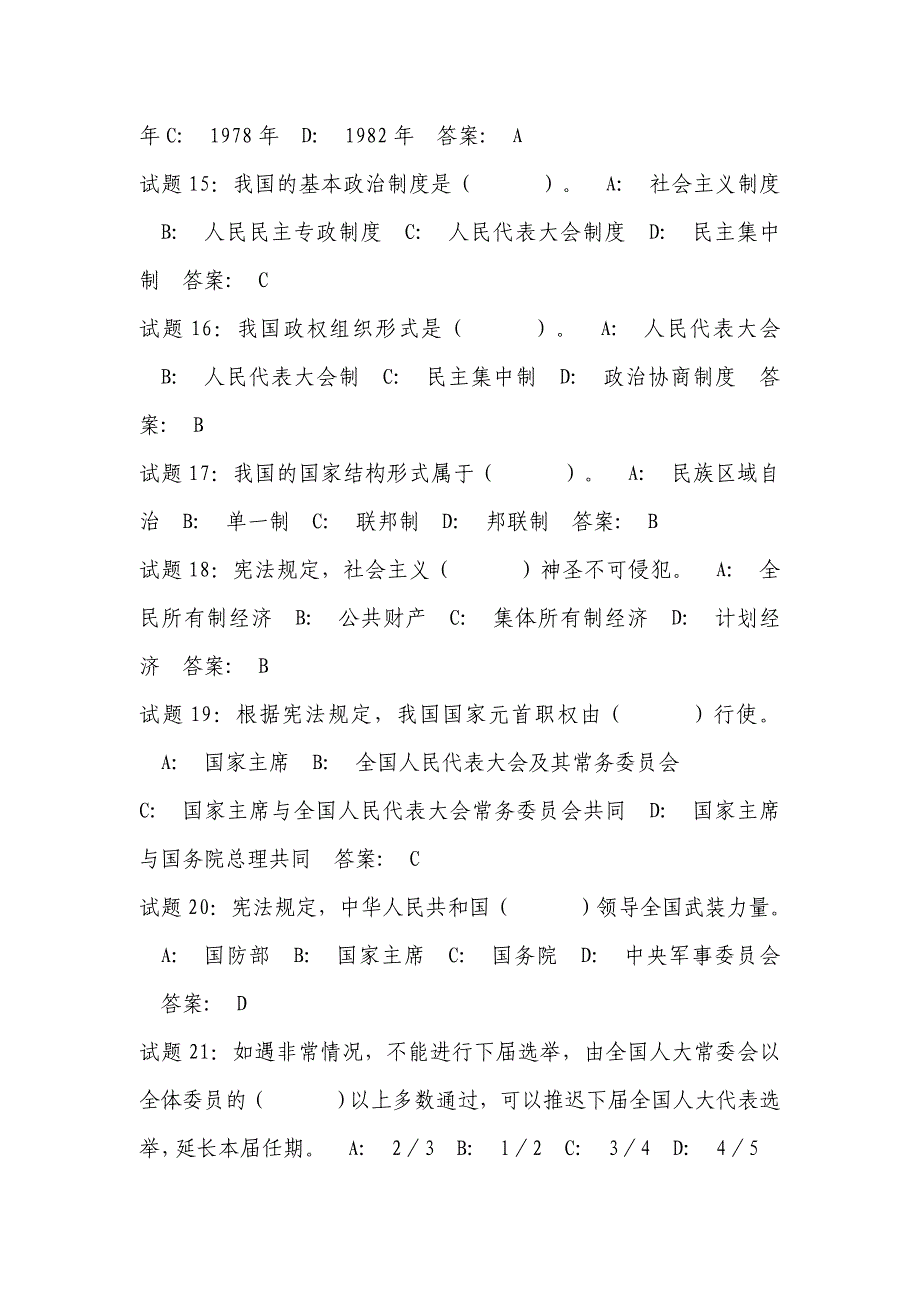 年C: 1978年 D: 1982年 答案: A
试题15:我国的基本政治制度是( )。 A: 社会主义制度
B: 人民民主专政制度 C: 人民代表大会制度 D: 民主集中
制 答案: C
试题16:我国政权组织形式是( )。 A: 人民代表大会
B: 人民代表大会制 C: 民主集中制 D: 政治协商制度 答
案: B
试题17:我国的国家结构形式属于( )。 A: 民族区域自
治 B: 单一制 C: 联邦制 D: 邦联制 答案: B
试题18:宪法规定,社会主义( )神圣不可侵犯。 A: 全
民所有制经济 B: 公共财产 C: 集体所有制经济 D: 计划经
济 答案: B
试题19:根据宪法规定,我国国家元首职权由( )行使。
A: 国家主席 B: 全国人民代表大会及其常务委员会
C: 国家主席与全国人民代表大会常务委员会共同 D: 国家主席
与国务院总理共同 答案: C
试题20:宪法规定,中华人民共和国( )领导全国武装力量。
A: 国防部 B: 国家主席 C: 国务院 D: 中央军事委员会
答案: D
试题21:如遇非常情况,不能进行下届选举,由全国人大常委会以
全体委员的( )以上多数通过,可以推迟下届全国人大代表选
举,延长本届任期。 A: 2/3 B: 1/2 C: 3/4 D: 4/5